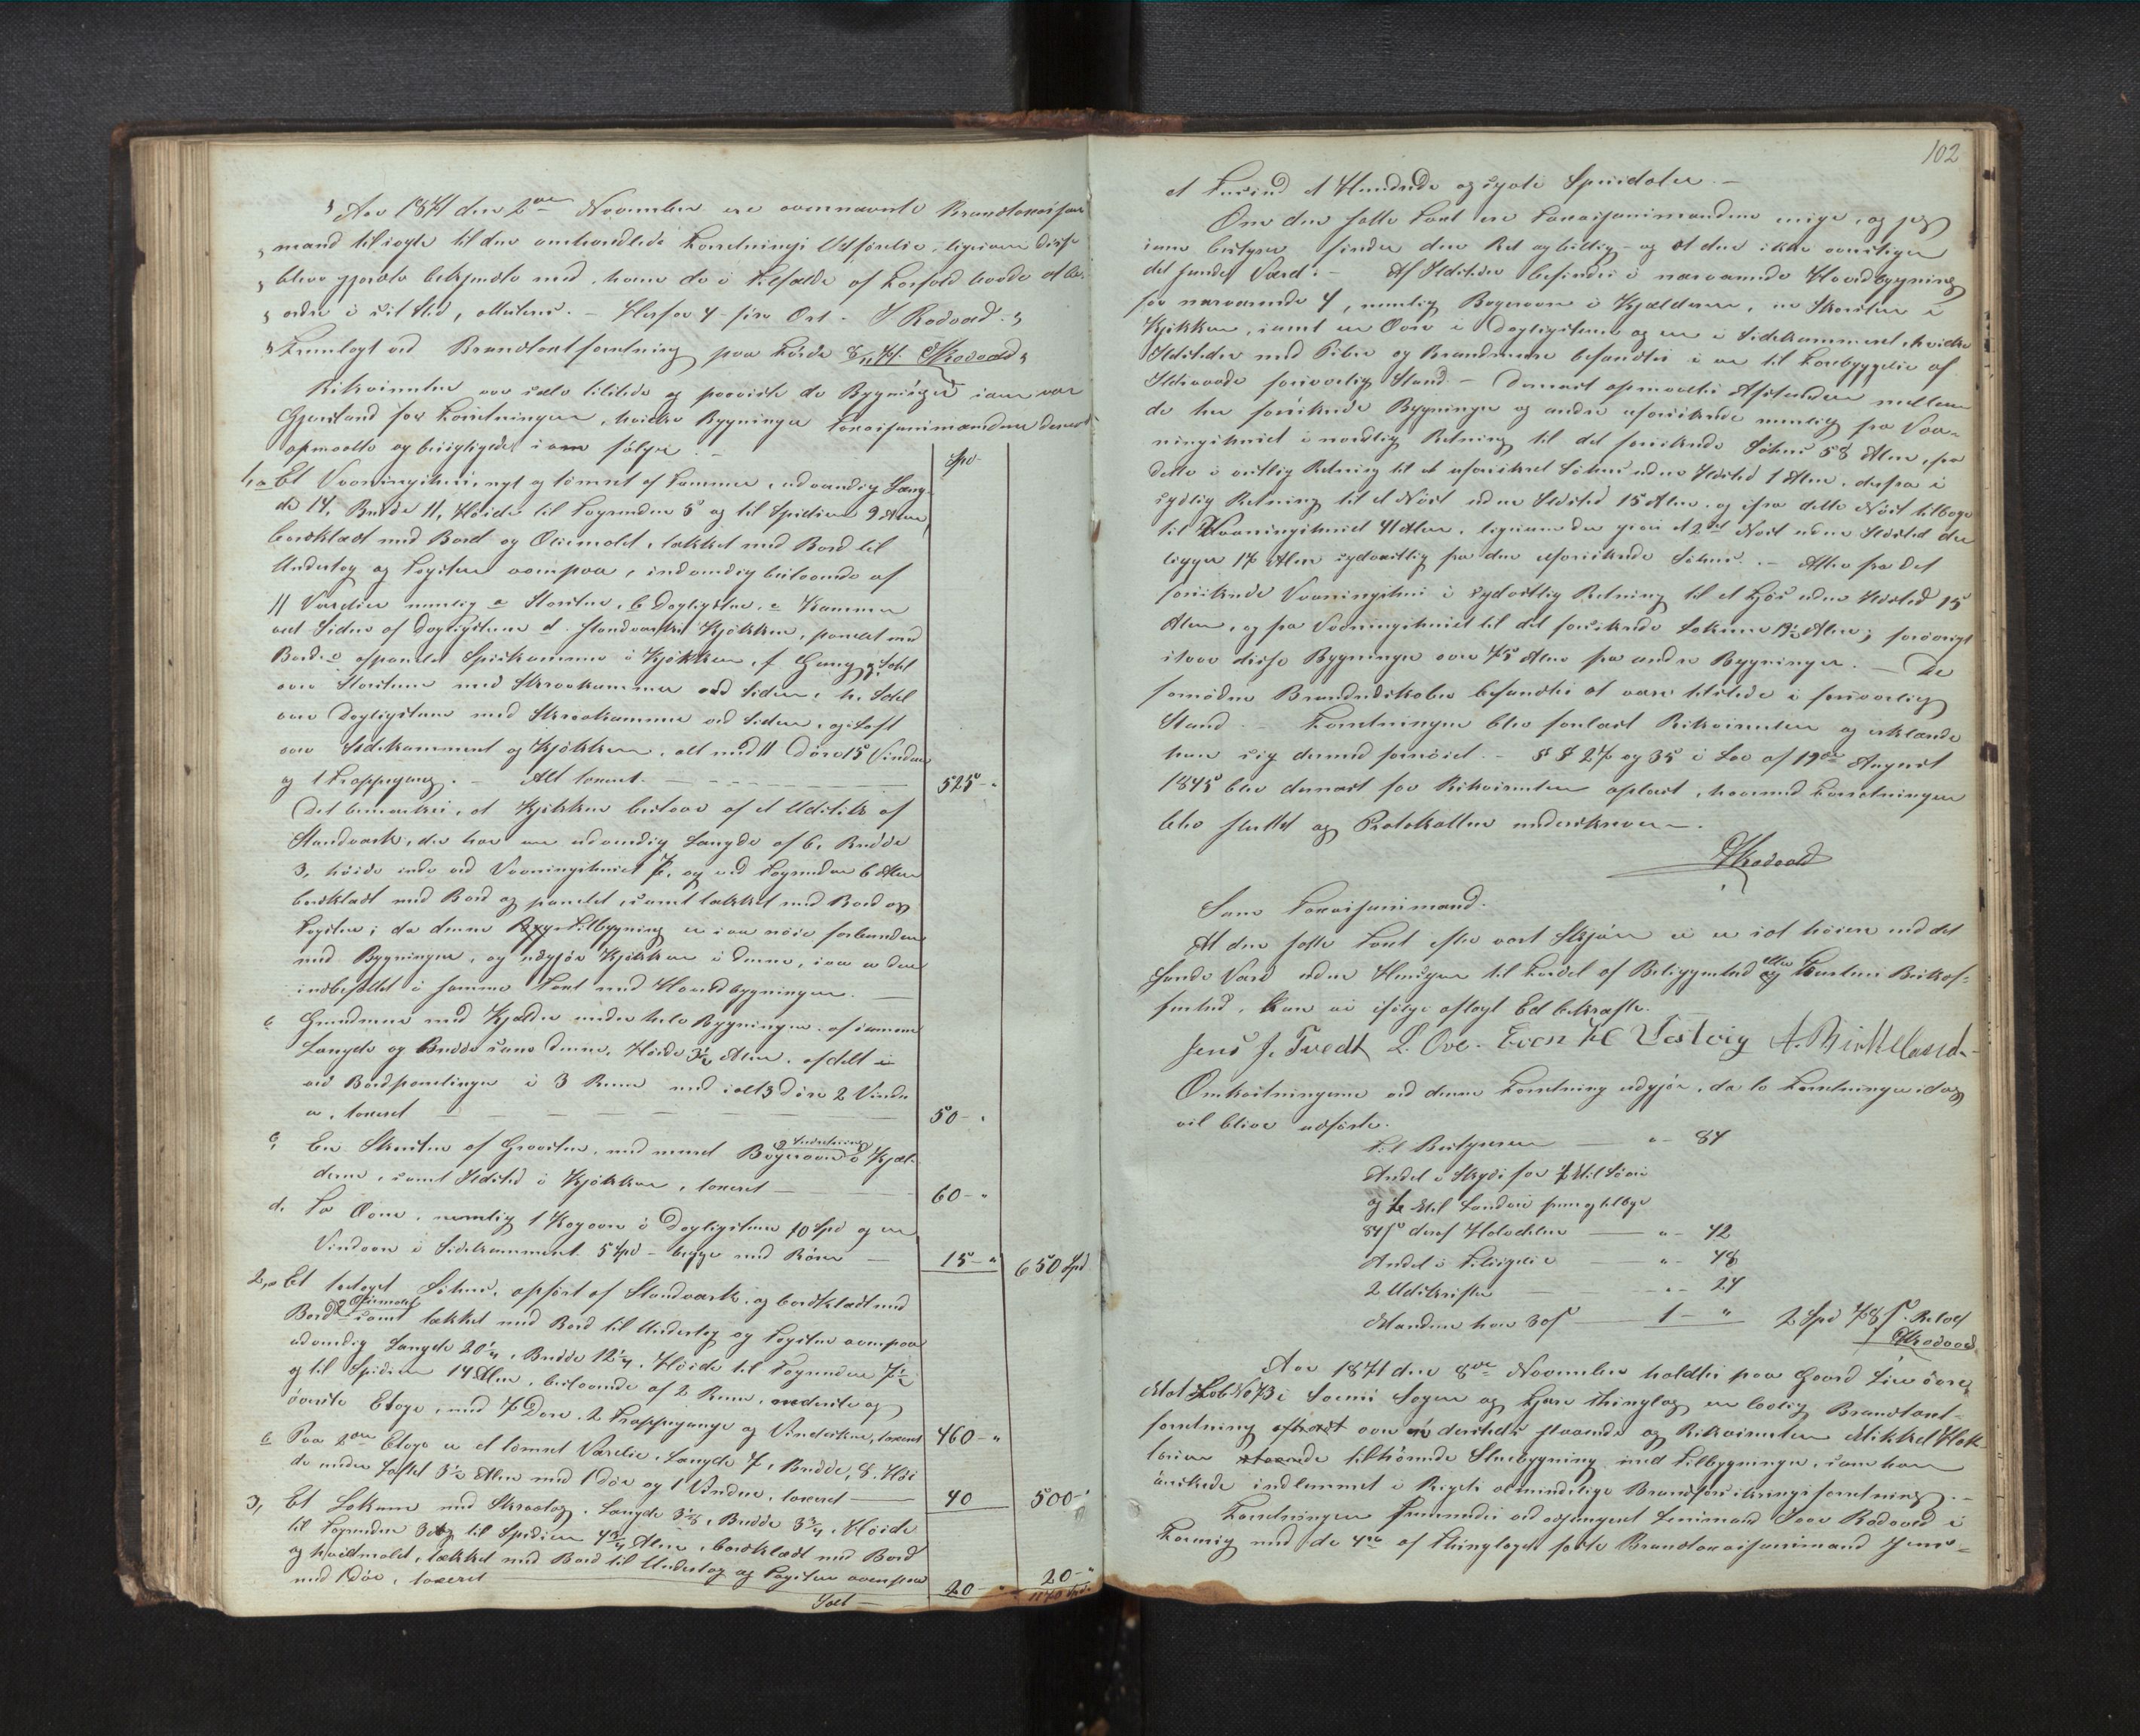 Aar 1871 den 2den November ere ovennævnte Brandtaxations-
mænd tilsagte til den omhandlede Forretnings Udførelse, ligesom disse
bleve gjorte bekjendte med, hvem de i Tilfælde af Forfald havde at be-
ordre i sit Sted, attesteres. – Herfor 4 – fire Ort. I Rødvad.
Fremlagt ved Brandtaxtforretning paa 8/11 71. Rødvad
Rekvirenten var selv tilstede og paaviste de Bygninger som var
Gjenstand for Forretningen, hvilke Bygninger Taxationsmændene dernæst
opmaalte og besigtigede som følger. –
Spd
1, a Et Vaaningshuus, nyt og tømret af Tømmer, udvendig Læng-
de 14, Bredde 11, Høide til Tagrenden 5 og til Spidsen 9 Alen,
bordklædt med Bord og Oliemalet, tækket med Bord til
Undertag og Tagsten ovenpaa, indvendig bestaaende af
11 Værelser nemlig a Storstue, b Dagligstue, c Kammer
ved Siden af Dagligstuen d. Standværks Kjøkken, panelet med
Bord e afpanelet Spiskammer i Kjøkken, f Gang g, Sahl
over Storstuen med Skraakammer ved Siden, h, Sahl
over Dagligstuen med Skraakammer ved Siden, og Loft
over Sidekammeret og Kjøkken, alt med 11 Døre 15 Vinduer
og 1 Trappegang. – Alt taxeret – 525 – "
Det bemærkes, at Kjøkken bestaar af et Udstik af
Standværk, der har en udvendig Længde af 6, Bredde
3, høide inde ved Vaaningshuset 7, og ved Tagrenden 6 Alen
bordklædt med Bord og panelet, samt tækket med Bord og
Tagsten; da denne Tilbygning er saa nøie forbunden
med Bygningen, og udgjør Kjøkken i denne, saa er den
indbefattet i samme Taxt med Hovedbygningen. –
b Grundmur med Kjælder under hele Bygningen af samme
Længde og Bredde som denne, Høide 3½ Alen, afdelt
ved Bordpanelinger i 3 Rum med ialt 3 døre 2 Vindu-
er, taxeret – 50 – "
c, En Skorsten af Graasten, med muret Bagerovn i Kjæl-
deren, samt Ildsted i Kjøkken, taxeret – 60 – "
d. To Ovne, nemlig 1 Kogovn i Dagligstuen 10 Spd og en
Vindovn i Sidekammeret 5 Spd – begge med Rører – 15 – " 650 Spd
2, a Et Søhuus, opført af Standværk, og bordklædt med
Bord samt tækket med Bord til Undertag og Tagsten ovenpaa
udvendig Længde 20¼, Bredde 12¼, Høide til Tagrenden 7½
og til Spidsen 14 Alen, bestaaende af 2 Rum, nederste og
øverste Etage, med 7 Døre, 2 Trappegange og Vindeskive, taxeret 460 – "
b Paa 2den Etage er et tømret Værelse, Længde 7, Bredde, 8, Høi-
de under Loftet 3½ Alen med 1 dør og 1 Vindue, taxeret – 40 500 – "
3, Et Lokum med Skraatag, Længde 3½, Bredde 3¾, Høide
til Tagrenden 3 og til Spidsen 4¾ Alen, bordklædt med Bord
og hvidmalet, tækket med Bord til Undertag og Tagsten ovenpaa
med 1 dør, taxeret 20 – " 20 – "
Ialt – 1170 Spd.
102
et Tusind et Hundrede og sytti Speciedaler. –
Om den satte Taxt ere Taxationsmændene enige, og jeg
som bestyrer finder den Ret og billig – og at den ikke overstiger
det sande Værd. – Af Ildsteder befindes i nærværende Hovedbygning
for nærværende 4, nemlig Bagerovn i Kjælderen, en Skorsten i
Kjøkken, samt en Ovn i Dagligstuen og en i Sidekammeret, hvilke
Ildsteder med Piber og Brandmure befandtes i en til Forebyggelse af
Ildsvaade forsvarlig Stand – Dernæst opmaaltes Afstanden mellem
de her forsikrede Bygninger og andre uforsikrede nemlig fra Vaa-
ningshuset i nordlig Retning til det forsikrede Søhuus 58 Alen, fra
dette i vestlig Retning til et uforsikret Søhuus uden Ildsted 1 Alen, derfra i
sydlig Retning til et Nøst uden Ildsted 15 Alen, og ifra dette Nøst tilbage
til Vaaningshuset 41 Alen, ligesom der gives et 2det Nøst uden Ildsted der
ligger 17 Alen sydvestlig fra den uforsikrede Søhuus. – Atter fra det
forsikrede Vaaningshuus i sydøstlig Retning til et Fjøs uden Ildsted 15
Alen, og fra Vaaningshuset til det forsikrede Lokum 19½ Alen; forøvrigt
staar disse Bygninger over 75 Alen fra andre Bygninger. – De
fornødne Brandredskaber befandtes at være tilstede i forsvarlig
Stand. – Forretningen blev forelæst Rekvirenten og erklærede
han sig dermed fornøiet. – §§ 27 og 35 i Lov af 19de August
1845 blev dernæst for Rekvirenten oplæst, hvormed Forretningen
blev sluttet og Protokollen underskreven –.
Rødvad
Som Taxationsmænd.
At den satte Taxt efter vort Skjøn ei er sat høiere end det
sande Værd uden Hensyn til Fordel af Beliggenhed eller Beskaf-
fenhed, kan vi ifølge aflagt Ed bekræfte.
Jens J. Tvedt L. Ove. Even H Vestvig A. Birkeland
Omkostningerne ved denne Forretning udgjør, da to Forretninger idag
vil blive udførte.
Til Bestyreren – " – 84
Andel i Skyds for ½ Mil Søvei
og ½ Mil Landvei frem og tilbage
84 ß deraf Halvdelen – " – 42
Andel i Tilsigelse – " – 48
2 Udskrifter – " – 24
Mændene hver 30 ß – 1 – " 2 Spd 78 ß. Betalt
Rødvad
Aar 1871 den 8de November holdtes paa Gaard øvre,
Mat Løb No 73 i Sogn og Thinglag en lovlig Brandtaxt-
forretning over de dersteds staaende og Rekvirenten Mikkel
tilhørende Stuebygning med Tilbygninger, som han
ønskede indlemmet i Rigets almindelige Brandforsikringsforretning. –
Forretningen fremmedes ved edsvoren Lensmand Rødvad i
Forening med de 4re af Thinglagets faste Brandtaxationsmænd Jens –